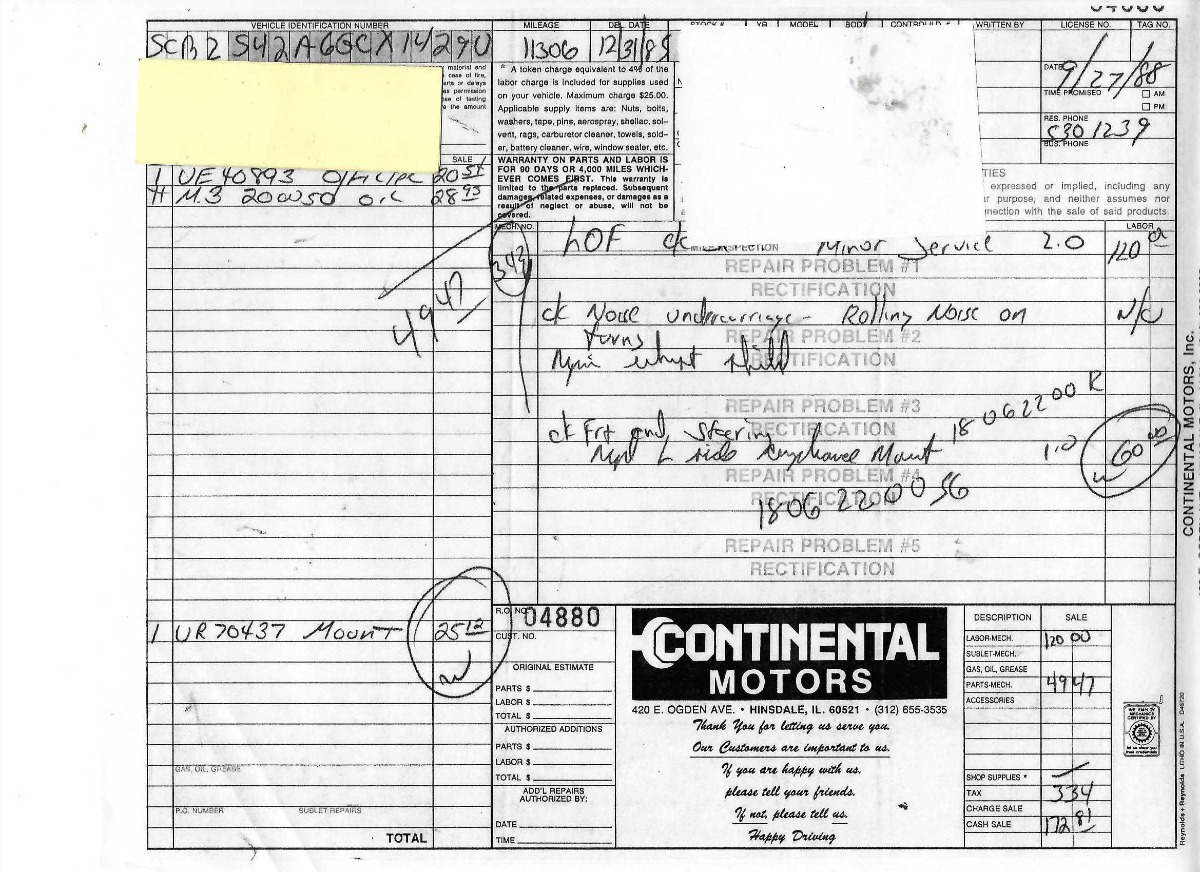 04880
VEHICLE IDENTIFICATION NUMBER MILEAGE DEL. DATE STOCK # YR MODEL BODY CONTROL ID # WRITTEN BY LICENSE NO. TAG NO.
SCBZ S42A6GCX14290 11306 12/31/85
material and
case of fire,
arts or delays
permission
se of testing
e the amount
* A token charge equivalent to 4% of the
labor charge is included for supplies used
on your vehicle. Maximum charge $25.00.
Applicable supply items are: Nuts, bolts,
washers, tape, pins, aerospray, shellac, sol-
vent, rags, carburetor cleaner, towels, sold-
er, battery cleaner, wire, window sealer, etc.
WARRANTY ON PARTS AND LABOR IS
FOR 90 DAYS OR 4,000 MILES WHICH-
EVER COMES FIRST. This warranty is
limited to the parts replaced. Subsequent
damages, related expenses, or damages as a
result of neglect or abuse, will not be
covered.
DATE 9/27/88
TIME PROMISED AM
PM
RES. PHONE
530 1239
BUS. PHONE
TIES
expressed or implied, including any
r purpose, and neither assumes nor
nnection with the sale of said products.
SALE
1 UE 40893 20 54
M.3 20W50 OIL 28 93
49 47
MECH. NO. LABOR
342
LOF ck Minor Service 2.0 120 00
INSPECTION
REPAIR PROBLEM #1
RECTIFICATION
ck Noise undercarriage - Rolling Noise on N/C
turns
REPAIR PROBLEM #2
RECTIFICATION
REPAIR PROBLEM #3
RECTIFICATION
ck Frt end Steering 18062200 R
L side Mount 1.0 60 00
REPAIR PROBLEM #4
RECTIFICATION
1806 2200 56
REPAIR PROBLEM #5
RECTIFICATION
1 UR 70437 Mount 25 12
W
GAS, OIL, GREASE
P.O. NUMBER SUBLET REPAIRS
TOTAL
R.O. NO. 04880
CUST. NO.
ORIGINAL ESTIMATE
PARTS $
LABOR $
TOTAL $
AUTHORIZED ADDITIONS
PARTS $
LABOR $
TOTAL $
ADD'L REPAIRS
AUTHORIZED BY:
DATE
TIME
CONTINENTAL
MOTORS
420 E. OGDEN AVE. • HINSDALE, IL. 60521 • (312) 655-3535
Thank You for letting us serve you.
Our Customers are important to us.
If you are happy with us,
please tell your friends.
If not, please tell us.
Happy Driving
DESCRIPTION SALE
LABOR-MECH. 120 00
SUBLET-MECH.
GAS, OIL, GREASE
PARTS-MECH. 49 47
ACCESSORIES
SHOP SUPPLIES *
TAX 3 34
CHARGE SALE
CASH SALE 172 81
CONTINENTAL MOTORS, Inc.
Reynolds + Reynolds LITHO IN U.S.A.